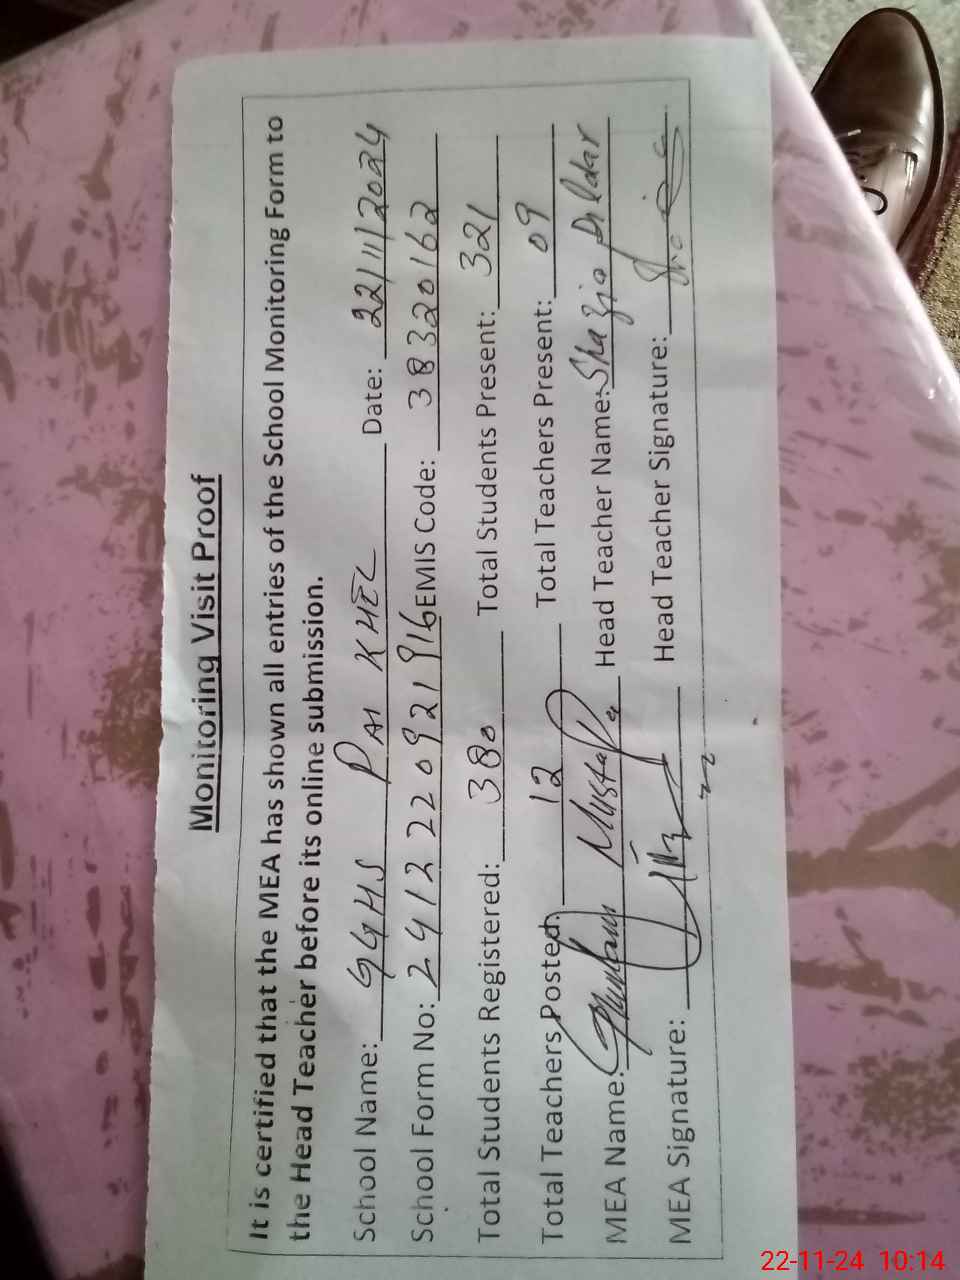 Monitoring Visit Proof
It is certified that the MEA has shown all entries of the School Monitoring Form to
the Head Teacher before its online submission.
School Name: GGHS PAI KHEL Date: 22/11/2024
School Form No: 241220921916 EMIS Code: 38320162
Total Students Registered: 380 Total Students Present: 321
Total Teachers Posted: 12 Total Teachers Present: 09
MEA Name: Ghulam Mustafa Head Teacher Name: Shazia Dildar
MEA Signature: Head Teacher Signature:
22-11-24 10:14